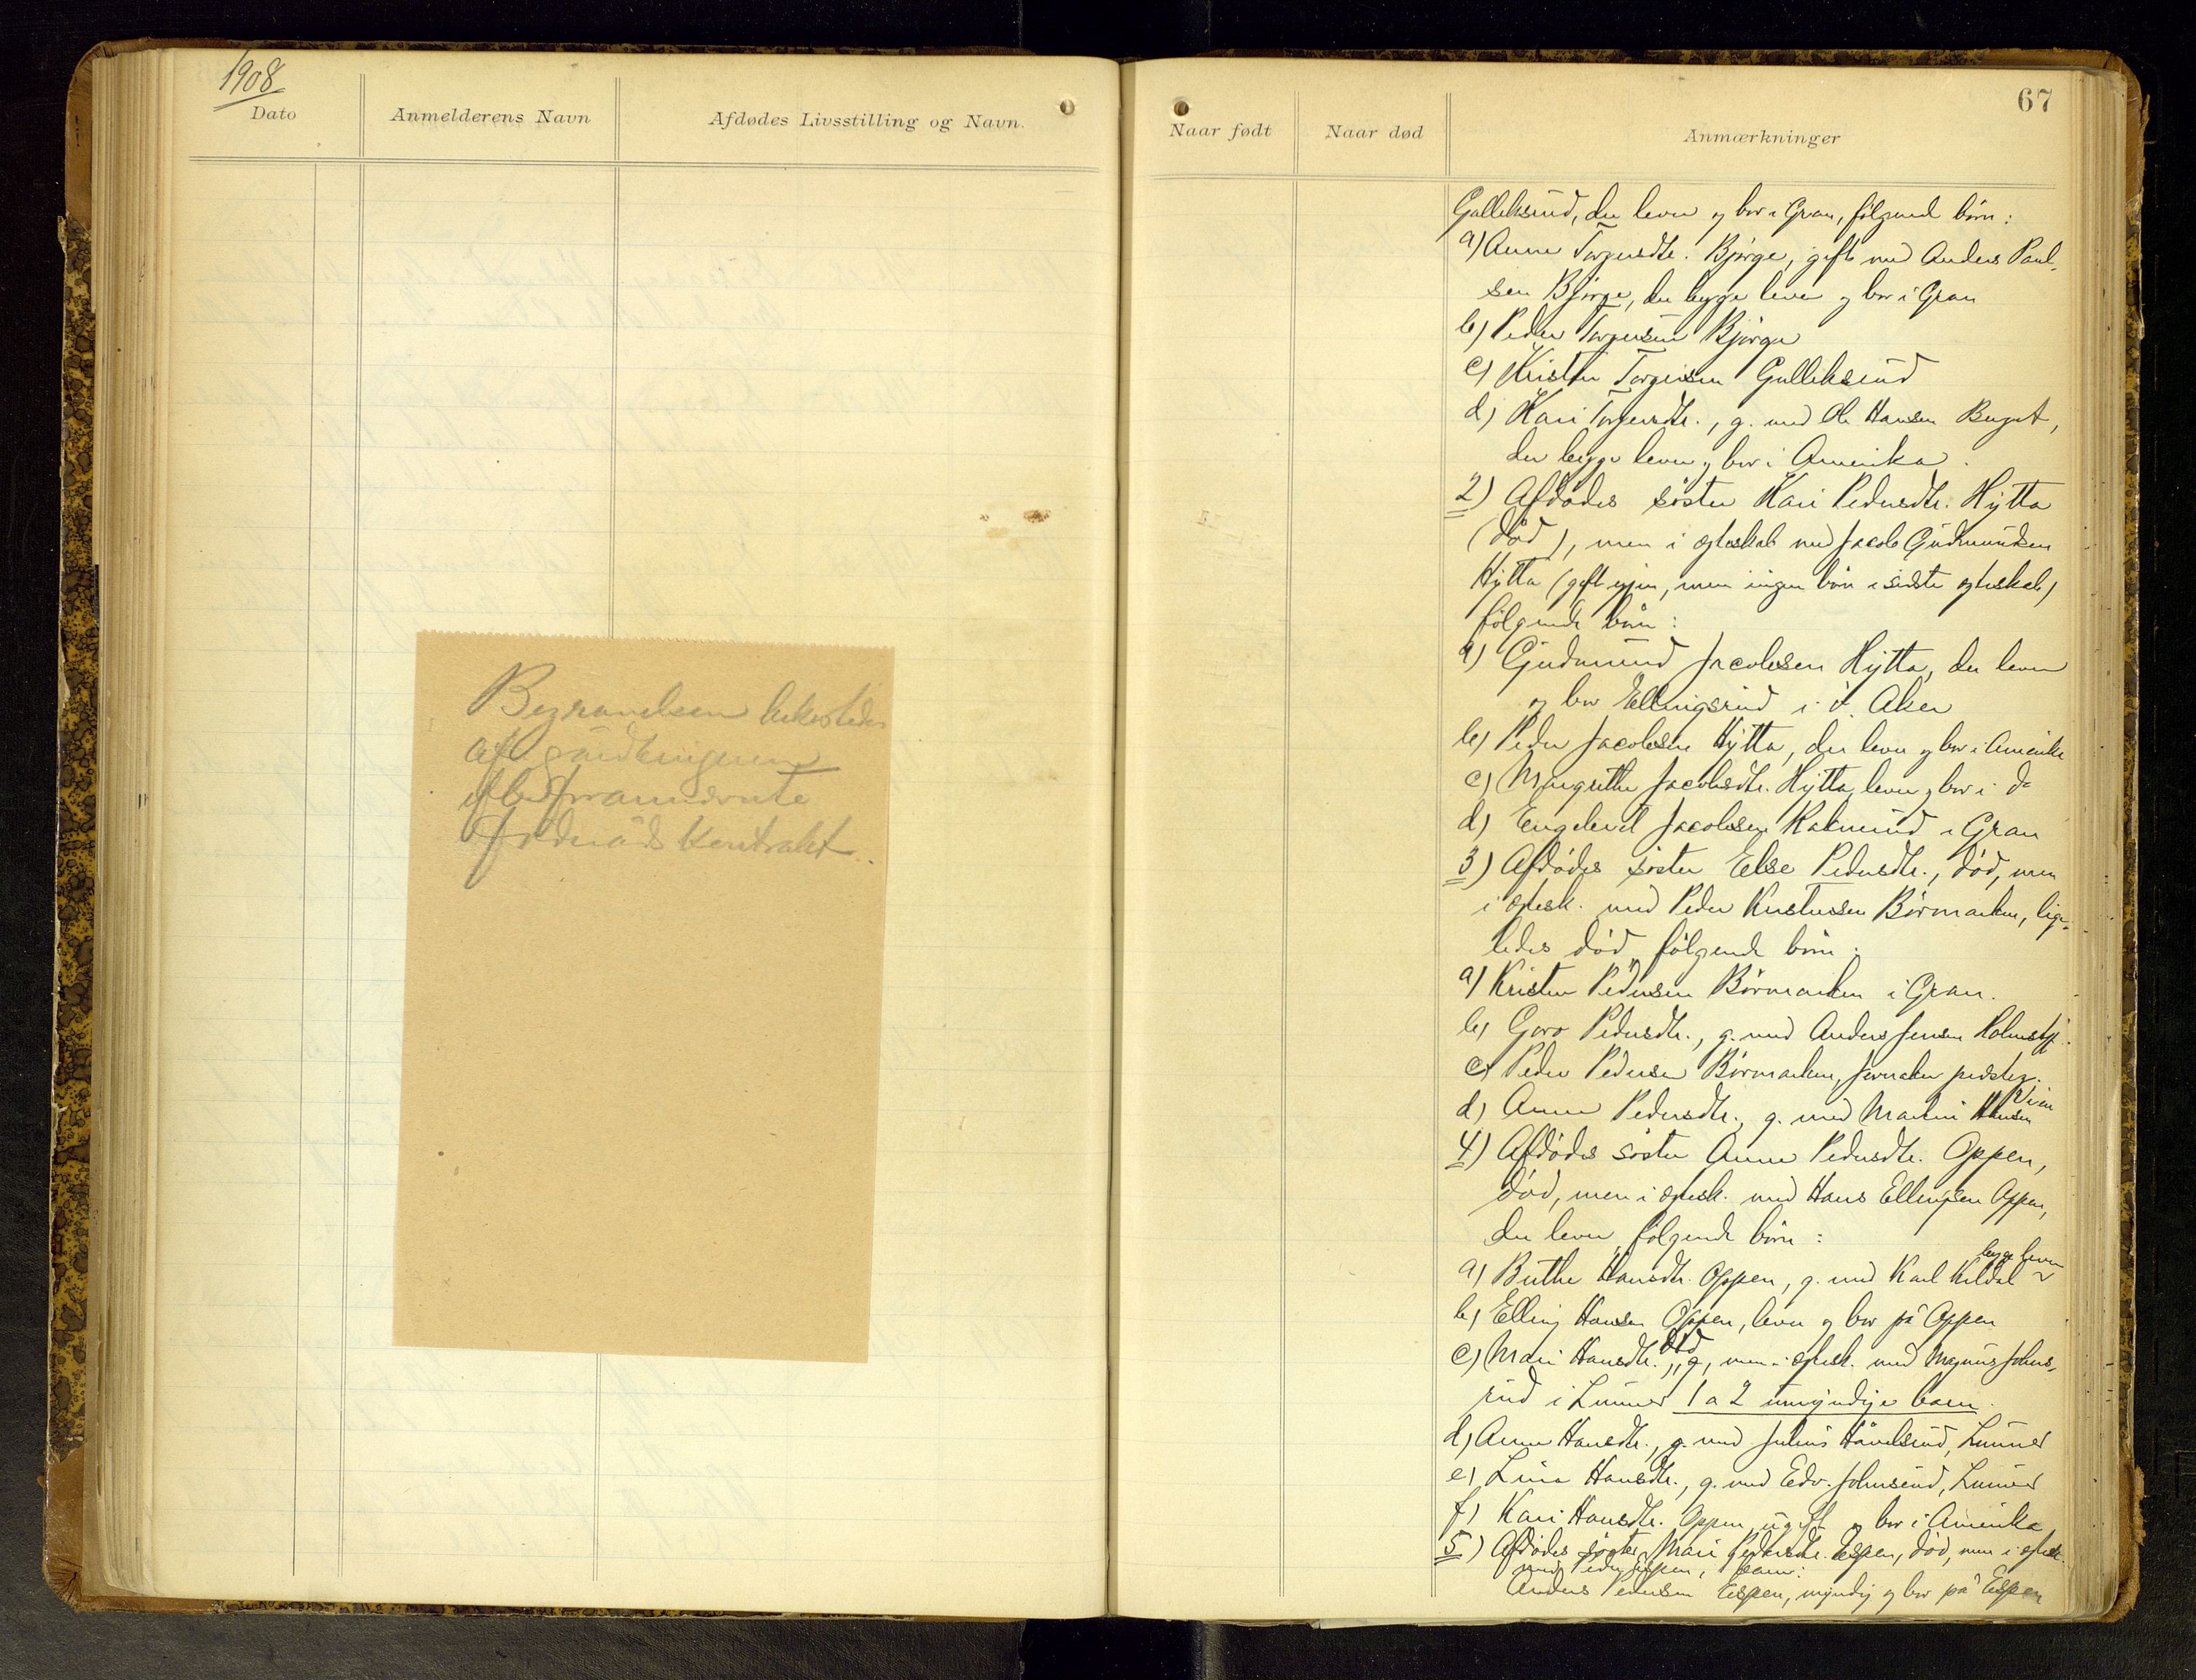 1908
Dato
Anmelderens Navn
Afdødes Livsstilling og Navn.
Begravelsen bekostedes
af gårdbrugeren
ifl. foranviste
Föderåds kontrakt.
67
Naar født
Naar død
Anmærkninger
Gulleksrud, der lever og bor i Gran, følgende børn:
a) Anne Torgersdtr. Bjørge, gift med Anders Paul-
sen Bjørge, der begge lever og bor i Gran
b) Peder Torgersen Bjørge
c) Kristen Torgersen Gulleksrud
d) Kari Torgersdtr., g. med Ole Hansen
der begge lever og bor i Amerika.
2) Afdødes søster Kari Pedersdtr. Hytta
(død), men i ægteskab med Jacob Gudmundsen
Hytta (gift igjen, men ingen børn i sidste ægteskab)
følgende børn:
a) Gudmund Jacobsen Hytta, der lever
og bor Ellingsrud i Ø. Aker
b) Peder Jacobsen Hytta, der lever og bor i Amerika
c) Margrethe Jacobsdtr. Hytta, lever og bor i do
d) Engebret Jacobsen Raknerud i Gran
3) Afdødes søster Else Pedersdtr., død, men
i ægtesk. med Peder Kristensen Børmarken, lige-
ledes død, følgende børn:
a) Kristen Pedersen Børmarken i Gran.
b) Goro Pedersdtr., g. med Anders Jensen
c) Peder Pedersen Børmarken, Jevnaker prestegj.
d) Anne Pedersdtr., g. med Martin Hansen
4) Afdødes søster Anne Pedersdtr. Oppen,
død, men i ægtesk. med Hans Ellingsen Oppen,
der lever, følgende børn:
a) Berthe Hansdtr. Oppen, g. med Karl Kildal begge lever
b) Elling Hansen Oppen, lever og bor på Oppen
c) Mari Hansdtr., død, men i ægtesk. med Magnus Johns-
rud i Lunner 1 a 2 umyndige barn.
d) Anne Hansdtr., g. med Julius Håvelsrud, Lunner
e) Lina Hansdtr., g. med Edv. Johnsrud, Lunner
f) Kari Hansdtr. Oppen ugift og bor i Amerika
5) Afdødes søster Mari Pedersdtr. Espen, død, men i ægtesk.
med Peder Espen, 1 barn:
Anders Pedersen Espen, myndig og bor på Espen